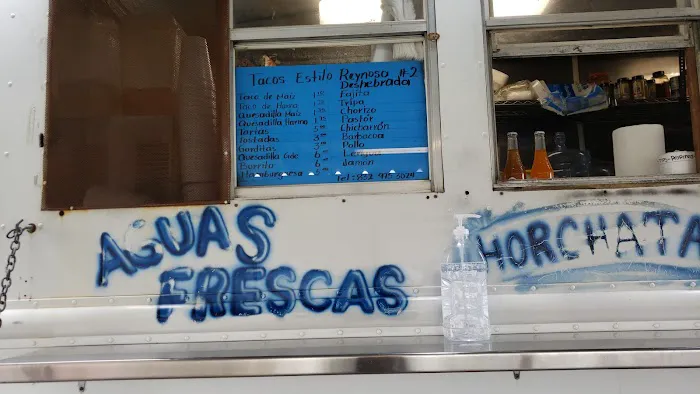 Tacos Estilo Reynosa #2
Deshebrada
Taco de Maiz
Taco de Harina
Quesadilla Maiz
Quesadilla Harina
Tortas
Tostadas
Gorditas
Quesadilla Gde
Burrito
Hamburguesa
Fajita
Tripa
Chorizo
Pastor
Chicharrón
Barbacoa
Pollo
Lengua
Jamon
AGUAS
FRESCAS
HORCHATA